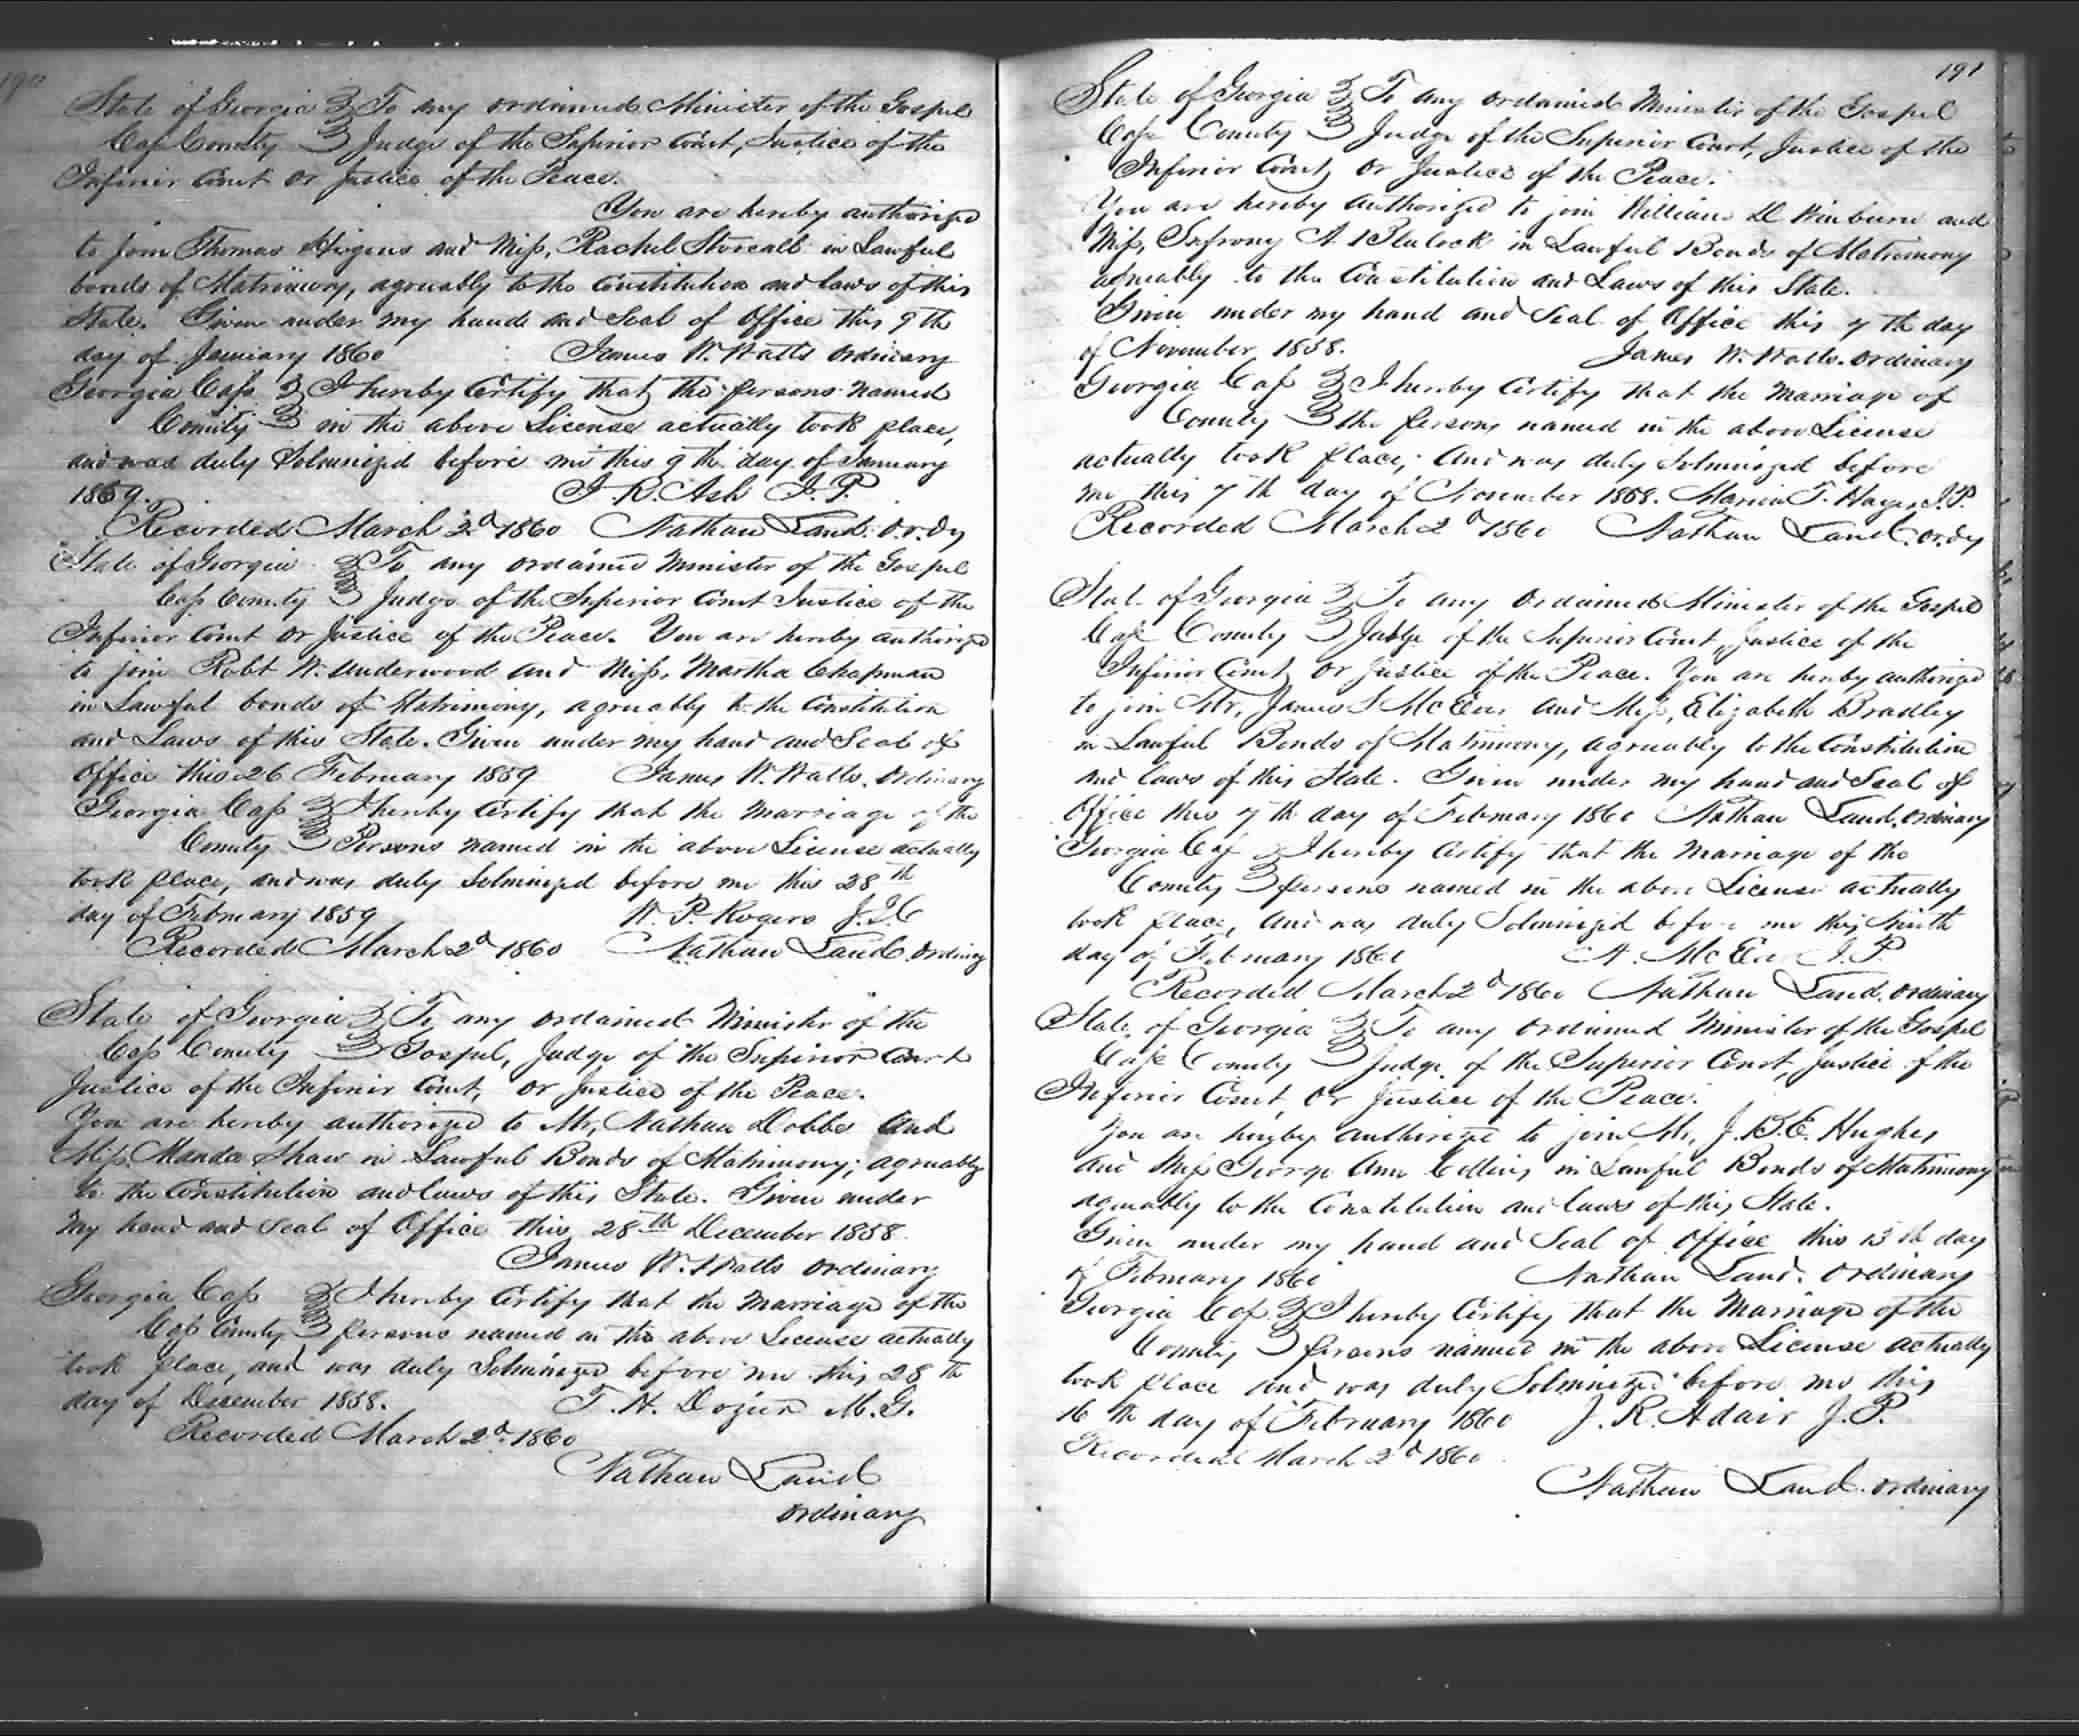 190
State of Georgia } To any ordained Minister of the Gospel
Cass County } Judge of the Superior Court, Justice of the
Inferior Court or Justice of the Peace.
You are hereby authorized
to join Thomas Higens and Miss, Rachel in Lawful
bonds of Matrimony, agreeably to the Constitution and laws of this
State. Given under my hand and Seal of Office this 9th
day of January 1860 James W. Watts Ordinary
Georgia Cass } I hereby Certify that the persons named
County } in the above License actually took place,
and was duly Solemnized before me this 9th day of January
1859. J. R. Ash J. P.
Recorded March 2d 1860 Nathan Land. Or.dy
State of Georgia } To any ordained Minister of the Gospel
Cass County } Judge of the Superior Court Justice of the
Inferior Court or Justice of the Peace. You are hereby authorized
to join Robt W. Underwood and Miss, Martha Chapman
in Lawful bonds of Matrimony, agreeably to the Constitution
and Laws of this State. Given under my hand and Seal of
Office this 26 February 1859 James W. Watts. Ordinary
Georgia Cass } I hereby Certify that the Marriage of the
County } Persons named in the above License actually
took place, and was duly Solemnized before me this 28th
day of February 1859 W. P. Rogers J.I.C
Recorded March 2d 1860 Nathan Land Ordinary
State of Georgia } To any ordained Minister of the
Cass County } Gospel, Judge of the Superior Court
Justice of the Inferior Court, or Justice of the Peace.
You are hereby authorized to Mr, Nathan Dobbs and
Miss Manda Shaw in Lawful Bonds of Matrimony; agreeably
to the Constitution and laws of this State. Given under
my hand and Seal of Office this 28th December 1858.
James W. Watts Ordinary
Georgia Cass } I hereby Certify that the Marriage of the
Cass County } persons named in the above License actually
took place, and was duly Solemnized before me this 28th
day of December 1858. T. H. Dozier M. G.
Recorded March 2d. 1860
Nathan Land
Ordinary
191
State of Georgia } To any ordained Minister of the Gospel
Cass County } Judge of the Superior Court, Justice of the
Inferior Court, or Justice of the Peace.
You are hereby authorized to join William D Winburn and
Miss, Safrony A. Blalock in Lawful Bonds of Matrimony
agreeably to the Constitution and Laws of this State.
Given under my hand and Seal of Office this 7th day
of November, 1858. James W. Watts. Ordinary
Georgia Cass } I hereby Certify that the Marriage of
County } the persons named in the above License
actually took place, and was duly Solemnized before
me this 7th day of November 1858. T. Hayes J.P.
Recorded March 2d 1860 Nathan Land. Or.dy
State of Georgia } To any ordained Minister of the Gospel
Cass County } Judge of the Superior Court, Justice of the
Inferior Court, or Justice of the Peace. You are hereby authorized
to join Mr, James S McEver and Miss, Elizabeth Bradley
in Lawful Bonds of Matrimony, agreeably to the Constitution
and laws of this State. Given under my hand and Seal of
Office this 7th day of February 1860 Nathan Land. Ordinary
Georgia Cass } I hereby Certify that the Marriage of the
County } persons named in the above License actually
took place, and was duly Solemnized before me this ninth
day of February 1860 A. McEver J. P.
Recorded March 2d 1860 Nathan Land. Ordinary
State of Georgia } To any ordained Minister of the Gospel
Cass County } Judge of the Superior Court, Justice of the
Inferior Court, or Justice of the Peace.
You are hereby authorized to join Mr, J. B. E. Hughes
and Miss George Ann Collins, in Lawful Bonds of Matrimony
agreeably to the Constitution and laws of this State.
Given under my hand and Seal of office this 15th day
of February 1860 Nathan Land. Ordinary
Georgia Cass } I hereby Certify that the Marriage of the
County } persons named in the above License actually
took place and was duly Solemnized before me this
16th day of February 1860 J. R. Adair J. P.
Recorded March 2d 1860
Nathan Land. Ordinary